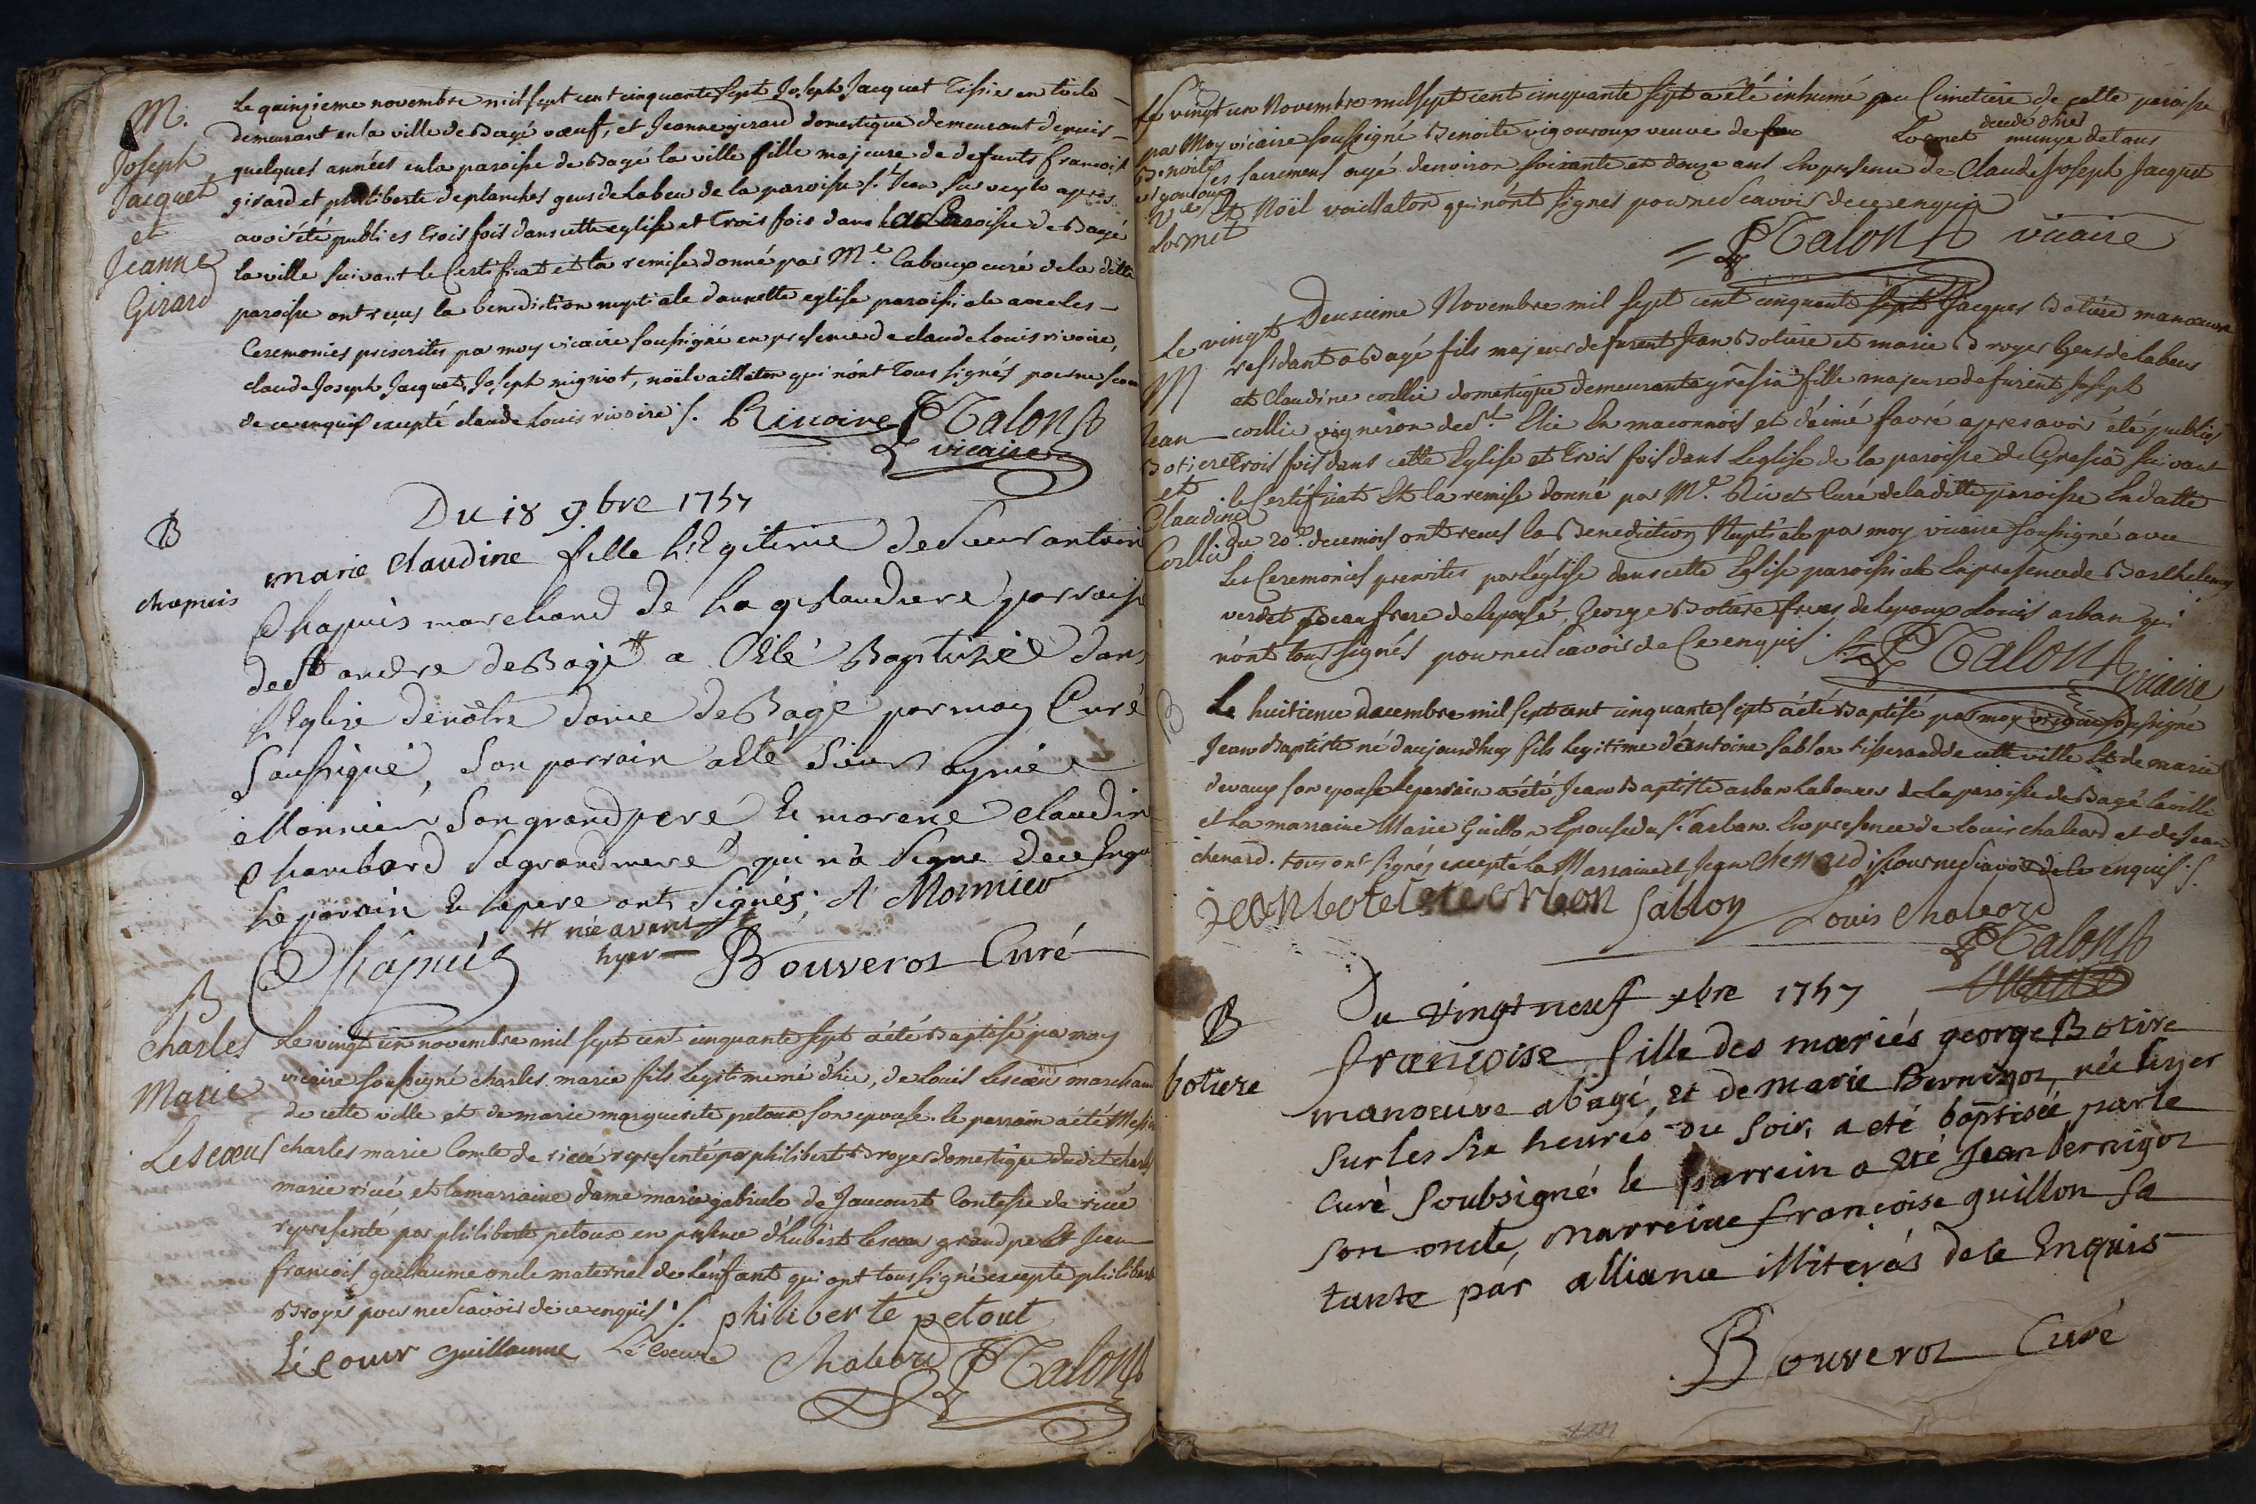 M.
Joseph
Jacquet
et
Jeanne
Girard
Le quinzieme novembre mil sept cent cinquante sept Joseph Jacquet Tissier en toile
demeurant en la ville de Bagé vœuf, et Jeanne girard domestique demeurant depuis
quelques années en la paroisse de Bagé la ville fille majeure de defunts francois
girard et philiberte deplanches gens de Labeur de la paroisse St Jean sur veyle apres
avoir été publiés trois fois dans cette eglise et trois fois dans la Paroisse de Bagé
la ville suivant le Certificat et la remise donné par Mre Caboux curé de la ditte
paroisse ont reçus la benediction nuptiale dans cette eglise paroissiale avec les
Ceremonies prescrites par moy vicaire soussigné en presence de claude Louis rivoire,
claude Joseph Jacquet, Joseph migniot, noël vaillaton qui n'ont tous signés pour ne scavoir
de ce enquis excepté claude Louis rivoire ./. Rivoire Talon
vicaire
B
chapuis
Du 18 9.bre 1757
marie claudine fille Légitime de sieur antoine
Chapuis marchand de La gislaudiere parroisse
de St andre de Bagé # a Eté Baptisée dans
L'Eglise de nôtre dame de Bagé par moy Curé
soussigné, son parrain a été sieur aymé
Monnier son grand pere et marene claudine
Chambard sa grand mere qui n'a signé de ce Enquis
Le parain et le pere ont signés; A Monnier
# née avant
hyer
Chapuis Bouverot Curé
B
Charles
Marie
Lescœur
Le vingt un novembre mil sept cent cinquante sept a été Baptisé par moy
vicaire soussigné charles marie fils legitime né d'hier, de Louis Lescœur marchand
de cette ville et de marie marguerite petoux son epouse. le parrain a été Messire
charles marie Comte de riccé representé par philibert Broyer domestique dudit charles
marie riccé et la marraine dame marie gabriele de Jaucourt Contesse de riccé
representé par philiberte petoux en presence d'hubert lescœur grand pere et Jean
francois guillaume oncle maternel de l'enfant qui ont tous signé excepté philibert
Broyer pour ne scavoir de ce enquis ./. philiberte petout
Lécour guillaume Lécoeur Chabord Talon
Benoite
vigouroux
vve
Lormet
Le vingt un Novembre mil sept cent cinquante sept a été inhumé au Cimetiere de cette paroisse
par Moy vicaire soussigné Benoite vigouroux veuve de feu Lormet decedé d'hier munye de tous
les sacremens agé denviron soixante et douze ans En presence de Claude Joseph Jacquet
Et Noël vaillaton qui n'ont signés pour ne scavoir de ce enquis
Talon vicaire
M
Jean
Botiere
et
Claudine
Collie
Le vingt Deuxieme Novembre mil sept cent cinquante sept Jacques Botiere manœuvre
residant a Bagé fils majeur de furent Jean Botiere et marie Broyer Gens de Labeur
et Claudine collie domestique demeurant a grésia fille majeure de furent Joseph
collie vigneron de St Elie En maconnois et d'aimé favré apres avoir été publiés
trois fois dans cette Eglise et trois fois dans l'eglise de la paroisse de Gresia suivant
le Certificat Et la remise donné par Mre Rivet Curé de la ditte paroisse En datte
du 20e de ce mois ont recus la Benediction Nuptiale par moy vicaire soussigné avec
Les Ceremonies prescrites par l'église dans cette Eglise paroissiale En presence de Barthelemy
verdet beaufrere de l'epousé, George Botiere frere de l'epoux Louis arban qui
n'ont tous signés pour ne scavoir de Ce enquis ./. Talon vicaire
B
Le huitieme decembre mil sept cent cinquante sept a été Baptisé par moy vicaire soussigné
Jean Baptiste né d'aujourdhuy fils legitime d'antoine sablon tisserand de cette ville Et de marie
devaux son epouse le parrain a été Jean Baptiste arban laboureur de la paroisse de Bagé la ville
et la marraine Marie Guillon Epouse du sr arban. En presence de louis chabord et de Jean
chenard. tous ont signés excepté la Marraine et Jean Chenard pour ne scavoir de ce enquis ./.
Sabloy Louis Chabord
Talon
vicaire
B
botiere
Du vingt neuf xbre 1757
françoise fille des mariés george Botire
manoeuvre a bagé, et de marie Bernigot, née hyer
sur les six heures du soir, a eté baptisée par le
Curé soubsigné le parrein a eté Jean bernigot
son oncle, marreine françoise guillon sa
tante par alliance illiterés de ce Enquis
Bouverot Curé